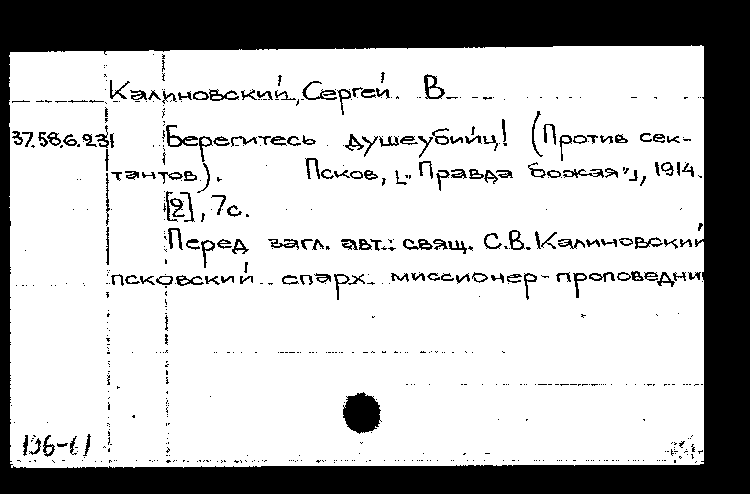 Калиновский, Сергей В
37.58.6.231 Берегитесь душеубийц! (Против сек-
тантов). Псков, [„Правда божая"], 1914.
[2], 7с.
Перед загл. авт.: свящ. С.В. Калиновский
псковский епарх. миссионер-проповедни